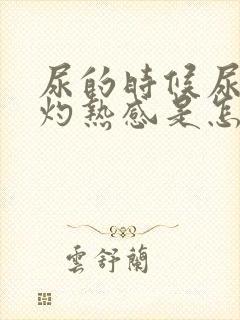 尿的時候尿
灼熱感是怎
雲舒蘭